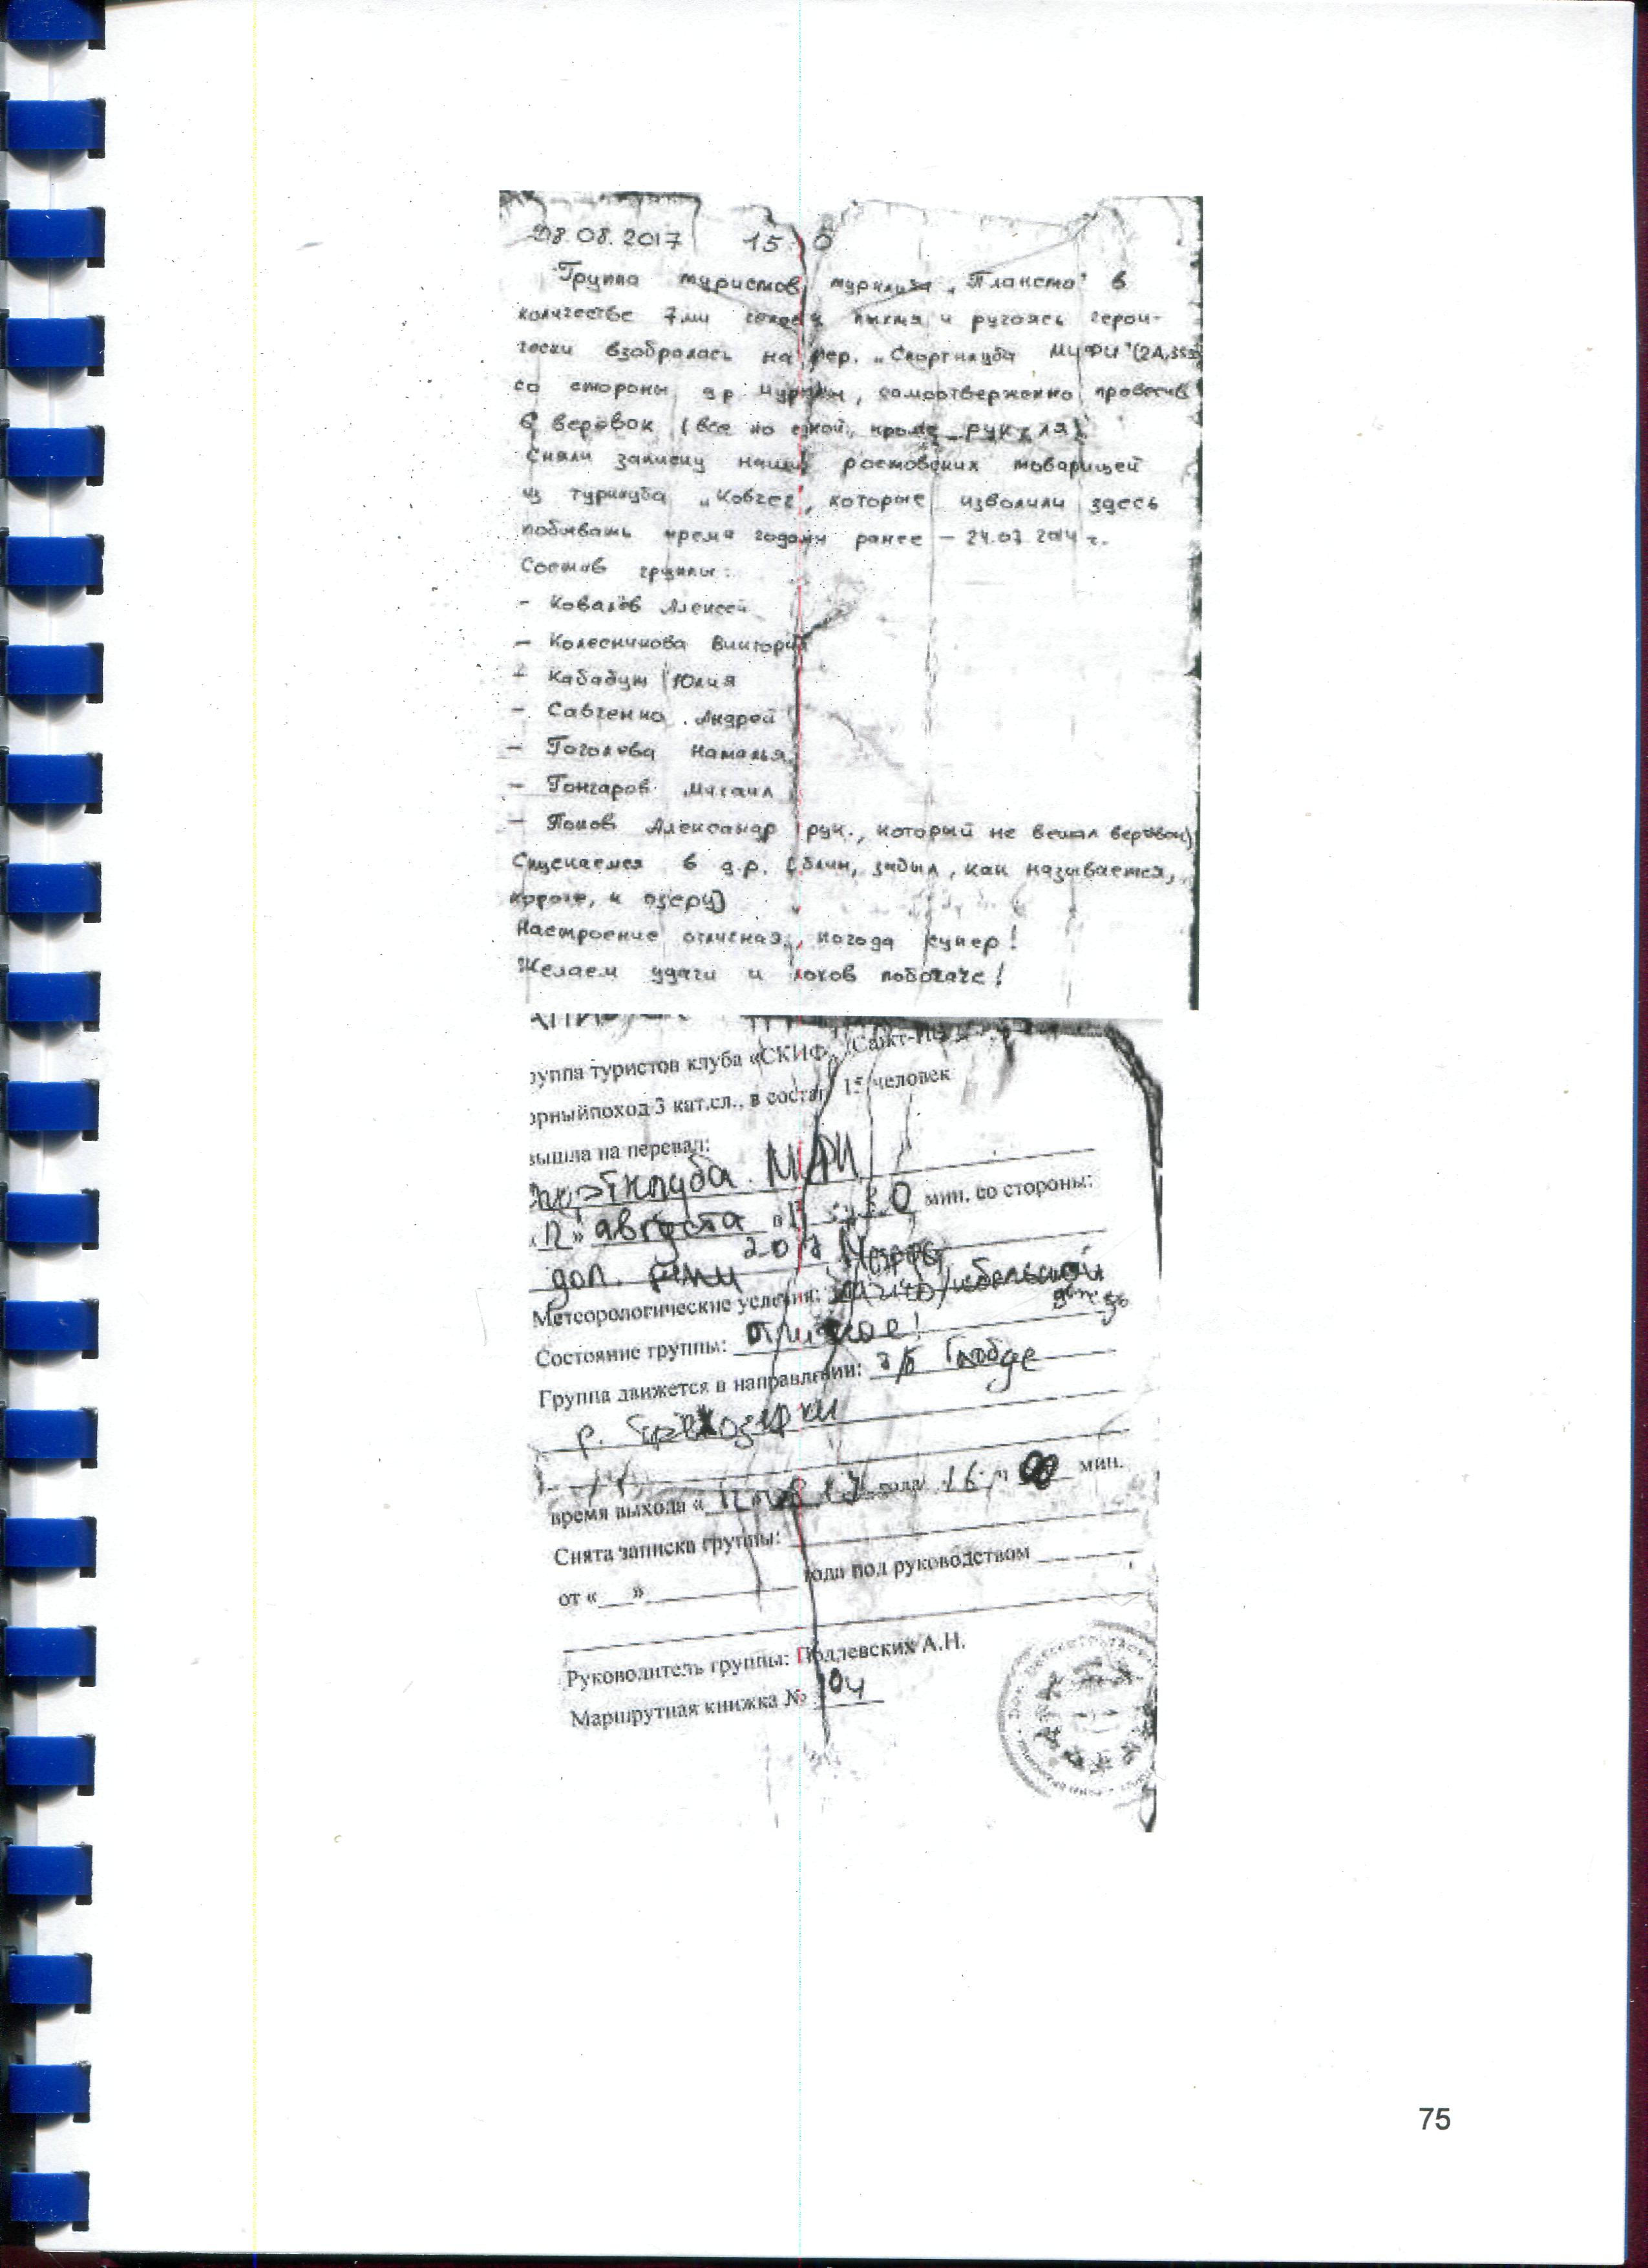 08.08.2017 15
Группа туристов турклуба „Планета" в
количестве 7ми человек пыхтя и ругаясь герои-
чески взобралась на пер. „Спортклуба МИФИ" (2А,
со стороны д.р. , самоотверженно провесив
6 веревок (все по одной, кроме рук-ля)
Сняли записку наших ростовских товарищей
из турклуба „Ковчег", которые изволили здесь
побывать тремя годами ранее – 24.07.2014 г.
Состав группы:
- Ковалёв Алексей
- Колесникова Виктория
- Кабадут Юлия
- Савченко Андрей
- Гоголева Наталья
- Гончаров Михаил
- Попов Александр рук., который не вешал веревок)
Спускаемся в д.р. (блин, забыл, как называется,
короче, к озеру)
Настроение отличная, погода супер!
Желаем удачи и побогаче!
руппа туристов клуба «СКИФ» (Санкт-
орныйпоход 3 кат.сл., в состав 15 человек
вышла на перевал:
Спортклуба МИФИ
«12» августа в мин. со стороны:
2017
дол. реки
Метеорологические условия: небольшой
дождь
Состояние группы: Отличное!
Группа движется в направлении:
р.
время выхода « года 16 ч 00 мин.
Снята записка группы:
от «___»___ года под руководством
Руководитель группы: Подлевских А.Н.
Маршрутная книжка № 104
75